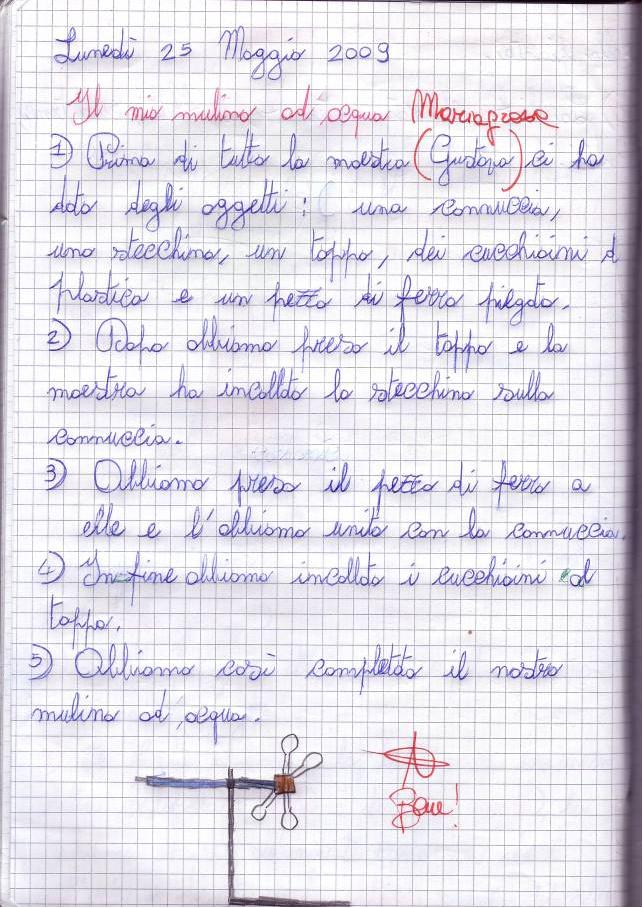 Lunedì 25 Maggio 2009
Il mio mulino ad acqua Mariagrese
1) Prima di tutto la maestra (Giustosa) ci ha
dato degli oggetti: una cannuccia,
uno stecchino, un tappo, dei cucchiaini d
plastica e un pezzo di ferro piegato.
2) Dopo abbiamo preso il tappo e la
maestra ha incollato lo stecchino sulla
cannuccia.
3) Abbiamo preso il pezzo di ferro a
elle e l'abbiamo unito con la cannuccia.
4) In fine abbiamo incollato i cucchiaini al
tappo.
5) Abbiamo così completato il nostro
mulino ad acqua.
Bene!